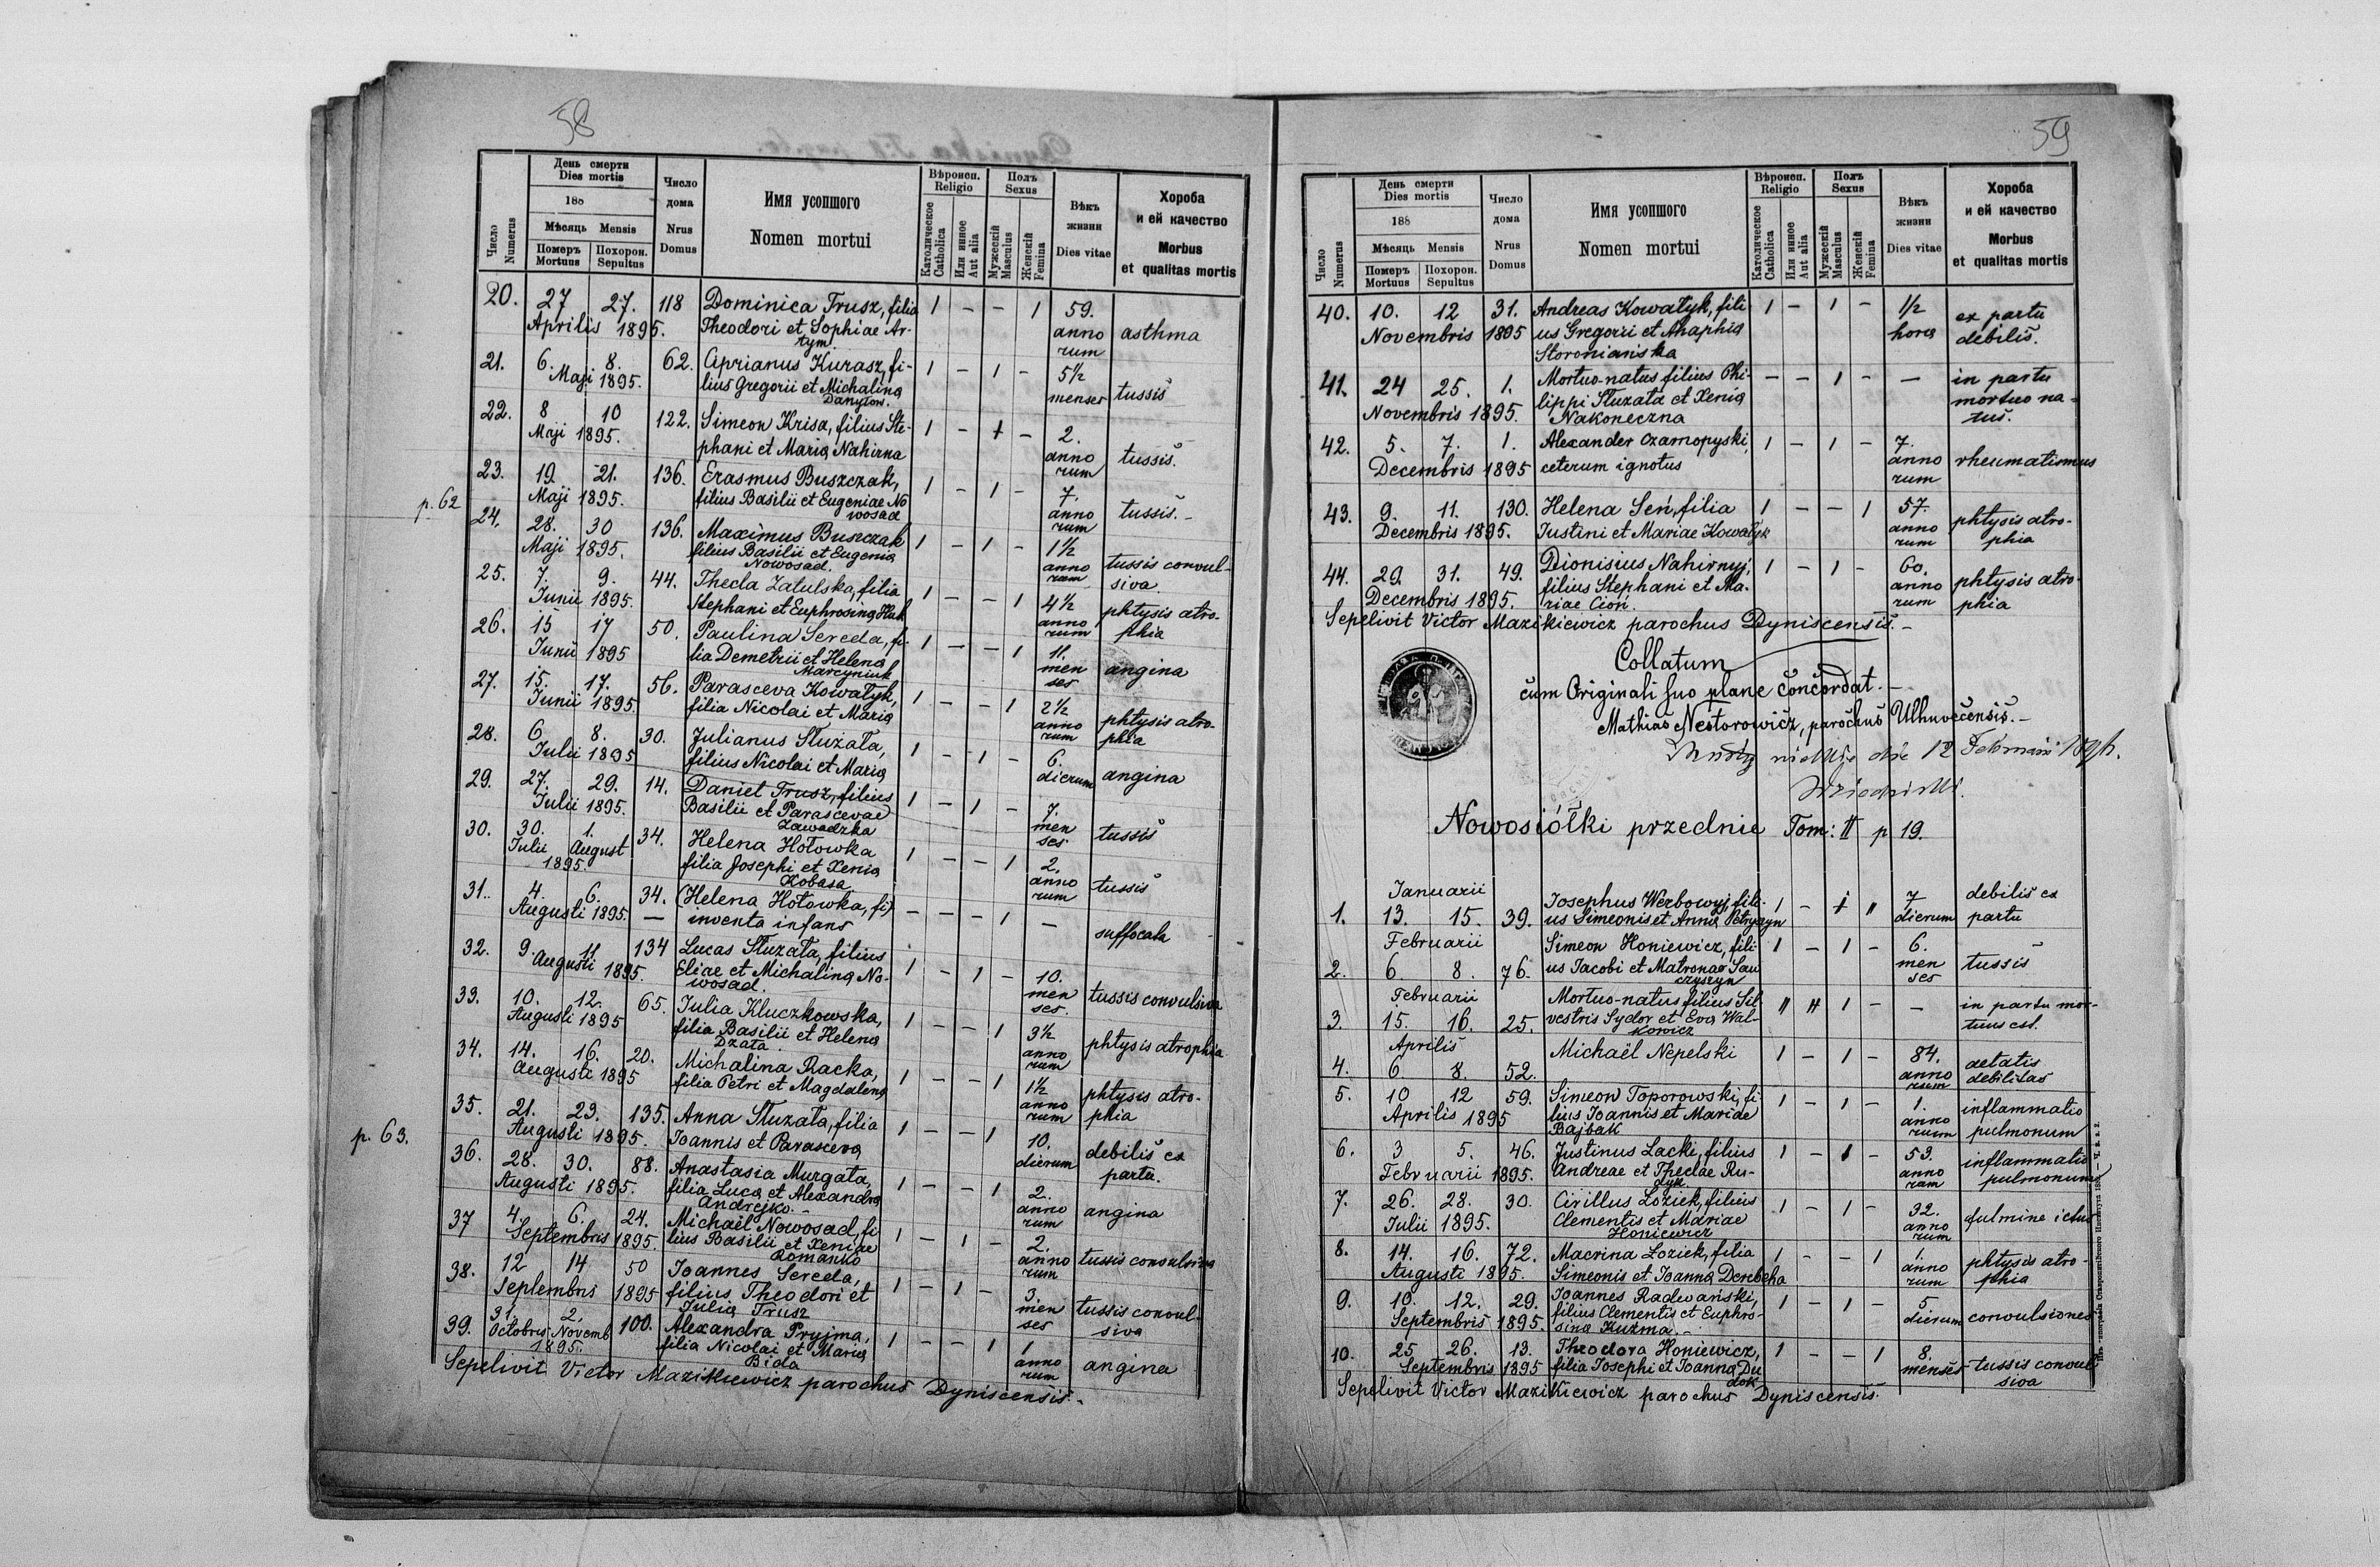 58
День смерти
Dies mortis
188
Мѣсяць Mensis
Число
Numerus
Померъ
Mortuus
Похорон.
Sepultus
Число
дома
Nrus
Domus
Имя усопшого
Nomen mortui
Вѣроисп.
Religio
Католическое
Catholica
Или инное
Aut alia
Полъ
Sexus
Мужескій
Masculus
Женскій
Femina
Вѣкъ
жизни
Dies vitae
Хороба
и ей качество
Morbus
et qualitas mortis
20. 27 27. 118 Dominica Trusz, filia 1 - - 1 59.
Aprilis 1895. Theodori et Sophiae Ar- anno asthma
tym. rum
21. 6. 8. 62. Cyprianus Kurasz, fi- 1 - 1 - 5½
Maji 1895. lius Gregorii et Michalina menses tussis
Danyłow.
22. 8 10 122. Simeon Krisa, filius Ste- 1 - 1 - 2.
Maji 1895. phani et Maria Nahirna anno tussis.
rum
p. 62
23. 19. 21. 136. Erasmus Buszczak, 1 - 1 - 7.
Maji 1895. filius Basilii et Eugeniae No anno tussis. -
wosad rum
24. 28. 30 136. Maximus Buszczak 1 - 1 - 1½
Maji 1895. filius Basilii et Eugenia anno tussis convul-
Nowosad. rum siva.
25. 7. 9. 44. Thecla Zatulska, filia 1 - - 1 4½ phtysis atro-
Junii 1895. Stephani et Euphrosina anno phia
rum
26. 15 17 50. Paulina Sereda, fi- 1 - - 1 11.
Junii 1895 lia Demetrii et Helena men angina
Marcyniuk ses
27. 15. 17. 56. Parasceva Kowałyk, 1 - - 1 2½
Junii 1895. filia Nicolai et Maria anno phtysis atro-
rum phia
28. 6. 8. 30. Julianus Służała, 1 - 1 - 6.
Julii 1895 filius Nicolai et Maria dierum angina
29. 27. 29. 14. Daniel Trusz, filius 1 - 1 - 7.
Julii 1895. Basilii et Parascevae men tussis
Zawadzka ses
30. 30. 1. 34. Helena Hołowka 1 - - 1 2.
Julii August filia Josephi et Xenia anno tussis
1895. Kobasa rum
31. 4. 6. 34. (Helena Hołowka, fi) - - - 1 -
Augusti 1895. — inventa infans suffocata
32. 9. 11. 134 Lucas Służała, filius 1 - 1 - 10.
Augusti 1895. Eliae et Michalina No- men tussis convulsiva
wosad. ses.
33. 10. 12. 65. Julia Kluczkowska, 1 - - 1 3½
Augusti 1895 filia Basilii et Helena anno phtysis atrophia
Dzała. rum
34. 14. 16. 20. Michalina Racka, 1 - - 1 1½
Augusti 1895 filia Petri et Magdalena anno phtysis atro-
rum phia
p. 63.
35. 21. 23. 135. Anna Służała, filia 1 - - 1 10.
Augusti 1895. Joannis et Parasceva dierum debilis ex
partu.
36. 28. 30. 88. Anastasia Murgała, 1 - - 1 2.
Augusti 1895. filia Luca et Alexandra anno angina
Andrejko. - rum
37 4. 6. 24. Michaël Nowosad, fi 1 - 1 - 2.
Septembris 1895. lius Basilii et Xeniae anno tussis convulsiva
Romanko rum
38. 12 14 50 Joannes Sereda, 1 - 1 - 3.
Septembris 1895 filius Theodori et men tussis convul-
Julia Trusz ses siva
39. 31. 2. 100. Alexandra Pryjma, 1 - - 1 1
Octobris Novemb filia Nicolai et Maria anno angina
1895. Bida rum
Sepelivit Victor Mazikiewicz parochus Dyniscensis. -
59
День смерти
Dies mortis
188
Мѣсяць Mensis
Число
Numerus
Померъ
Mortuus
Похорон.
Sepultus
Число
дома
Nrus
Domus
Имя усопшого
Nomen mortui
Вѣроисп.
Religio
Католическое
Catholica
Или инное
Aut alia
Полъ
Sexus
Мужескій
Masculus
Женскій
Femina
Вѣкъ
жизни
Dies vitae
Хороба
и ей качество
Morbus
et qualitas mortis
40. 10. 12 31. Andreas Kowałyk, fili 1 - 1 - 1/2 ex partu
Novembris 1895 us Gregorii et Ahaphia hora debilis.
Storoniańska
41. 24 25. 1. Mortuo-natus filius Phi- - - 1 - - in partu
Novembris 1895. lippi Służała et Xenia mortuo na-
Nakoneczna tus.
42. 5. 7. 1. Alexander Czarnopyski, 1 - 1 - 7.
Decembris 1895 ceterum ignotus anno rheumatismus
rum
43. 9. 11. 130. Helena Seń, filia 1 - - 1 57. phtysis atro-
Decembris 1895. Justini et Mariae Kowałyk anno phia
rum
44. 29. 31. 49. Dionisius Nahirnyj, 1 - 1 - 60.
Decembris 1895. filius Stephani et Ma- anno phtysis atro-
riae Cioń. rum phia
Sepelivit Victor Mazikiewicz parochus Dyniscensis. -
Collatum
cum Originali suo plane concordat. -
Mathias Nestorowicz, parochus Ulhuvecensis. -
die 12 Februarii
Nowosiółki przednie Tom: II p 19.
Januarii Josephus Werbowyj, fili- 1 - 1 " 7 debilis ex
1. 13. 15. 39. us Simeonis et Anna Petryszyn dierum partu
Februarii Simeon Honiewicz, fili- 1 - 1 - 6.
2. 6. 8. 76. us Jacobi et Matronae Sau men tussis
czyszyn ses
Februarii Mortuo-natus filius Sil " " 1 - - in partu mor-
3. 15. 16. 25. vestris Sydor et Eva Wal- tuus est.
kowicz
Aprilis Michaël Nepelski 1 - 1 - 84. aetatis
4. 6. 8. 52. anno debilitas
rum
5. 10 12 59. Simeon Toporowski, fi- 1 - 1 - 1. inflammatio
Aprilis 1895 lius Joannis et Mariae anno pulmonum
Bajbak rum
6. 3 5. 46. Justinus Lacki, filius 1 - 1 - 53. inflammatio
Februarii 1895. Andreae et Theclae Ru- anno pulmonum
dyk rum
7. 26. 28. 30. Cirillus Loziek, filius 1 - 1 - 32. fulmine ictus
Julii 1895. Clementis et Mariae anno
Honiewicz rum
8. 14. 16. 72. Macrina Loziek, filia 1 - - 1 1. phtysis atro-
Augusti 1895. Simeonis et Joanna Derebeha anno phia
rum
9. 10. 12. 29. Joannes Radwański, 1 - 1 - 5
Septembris 1895. filius Clementis et Euphro- dierum convulsiones
sina Kuźma. -
10. 25. 26. 13. Theodora Honiewicz, 1 - - 1 8.
Septembris 1895 filia Josephi et Joanna Du menses tussis convul
dok siva
Sepelivit Victor Mazikiewicz parochus Dyniscensis.